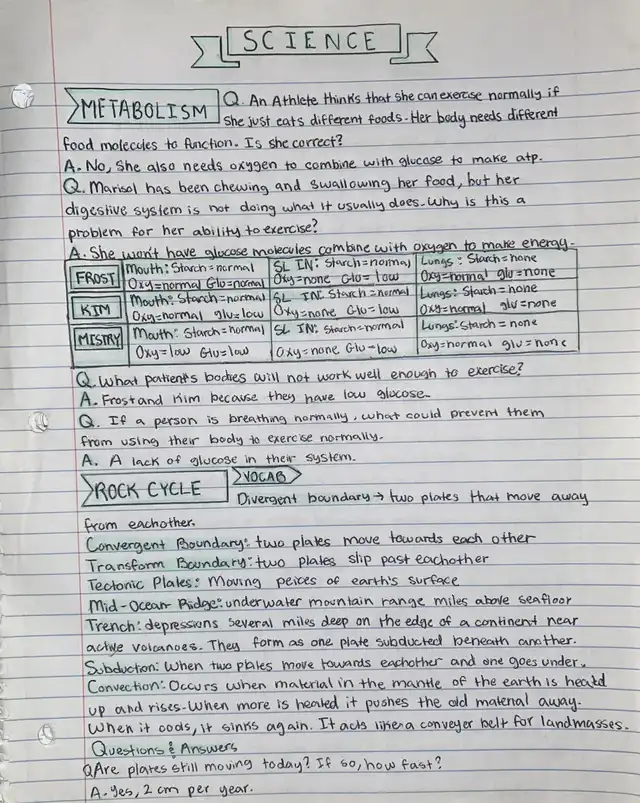 SCIENCE
METABOLISM Q. An Athlete thinks that she can exercise normally if
she just eats different foods. Her body needs different
food molecules to function. Is she correct?
A. No, She also needs oxygen to combine with glucose to make atp.
Q. Marisol has been chewing and swallowing her food, but her
digestive system is not doing what it usually does. Why is this a
problem for her ability to exercise?
A. She won't have glucose molecules combine with oxygen to make energy.
FROST Mouth: Starch=normal SL IN: Starch=normal Lungs: Starch=none
Oxy=normal Glu=normal Oxy=none Glu=low Oxy=normal glu=none
KIM Mouth: Starch=normal SL IN: Starch=normal Lungs: Starch=none
Oxy=normal glu=low Oxy=none Glu=low Oxy=normal glu=none
MISTRY Mouth: Starch=normal SL IN: Starch=normal Lungs: Starch=none
Oxy=low Glu=low Oxy=none Glu=low Oxy=normal glu=none
Q. What patient's bodies will not work well enough to exercise?
A. Frost and Kim because they have low glucose.
Q. If a person is breathing normally, what could prevent them
from using their body to exercise normally.
A. A lack of glucose in their system.
ROCK CYCLE VOCAB
Divergent boundary → two plates that move away
from eachother.
Convergent Boundary: two plates move towards each other
Transform Boundary: two plates slip past eachother
Tectonic Plates: Moving peices of earth's surface
Mid-Ocean Ridge: underwater mountain range miles above seafloor
Trench: depressions several miles deep on the edge of a continent near
active volcanoes. They form as one plate subducted beneath another.
Subduction: When two plates move towards eachother and one goes under.
Convection: Occurs when material in the mantle of the earth is heatd
up and rises. When more is heated it pushes the old material away.
When it cools, it sinks again. It acts like a conveyer belt for landmasses.
Questions & Answers
Q Are plates still moving today? If so, how fast?
A. yes, 2 cm per year.